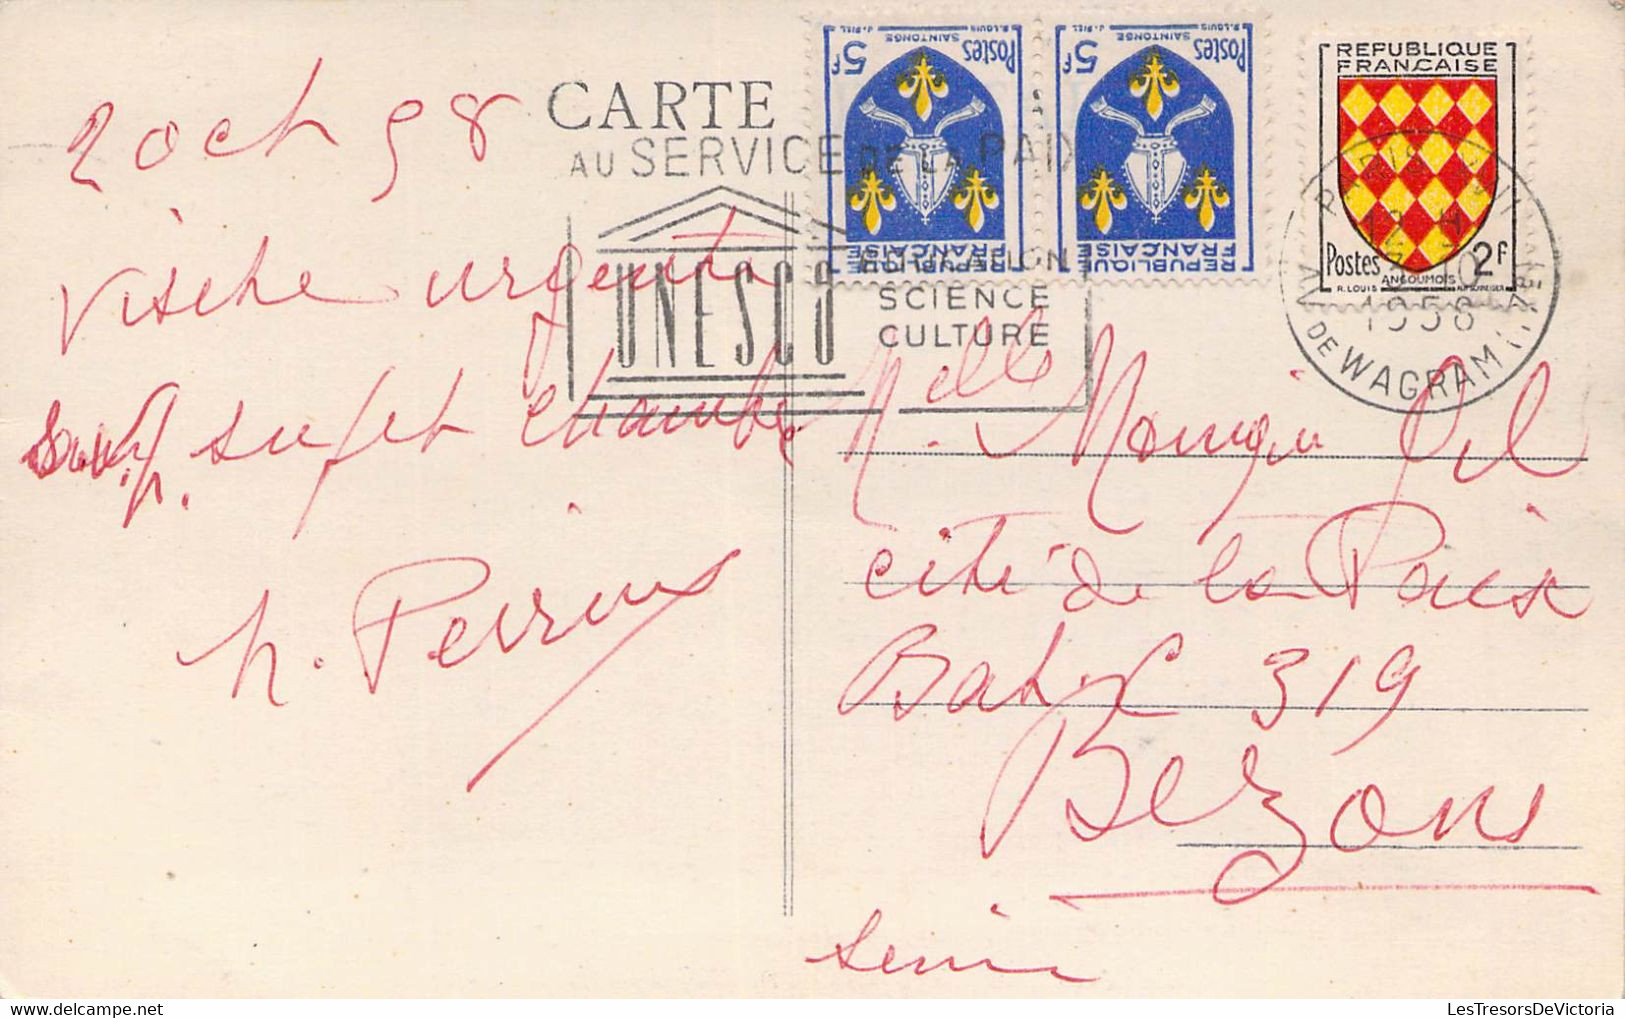 CARTE
AU SERVICE DE LA PAIX
UNESCO
EDUCATION
SCIENCE
CULTURE
5f Postes
SAINTONGE
R. LOUIS J. PIEL
REPUBLIQUE
FRANÇAISE
5f Postes
SAINTONGE
R. LOUIS J. PIEL
REPUBLIQUE
FRANÇAISE
REPUBLIQUE
FRANÇAISE
Postes 2F
ANGOUMOIS
R. LOUIS
PARIS XVII
AV. DE WAGRAM
1958
2 oct 58
visite urgente
sujet chambre
M. Perrin
Melle
cité de la Paix
Bat. C 319
Bezons
Seine
LesTresorsDeVictoria.com